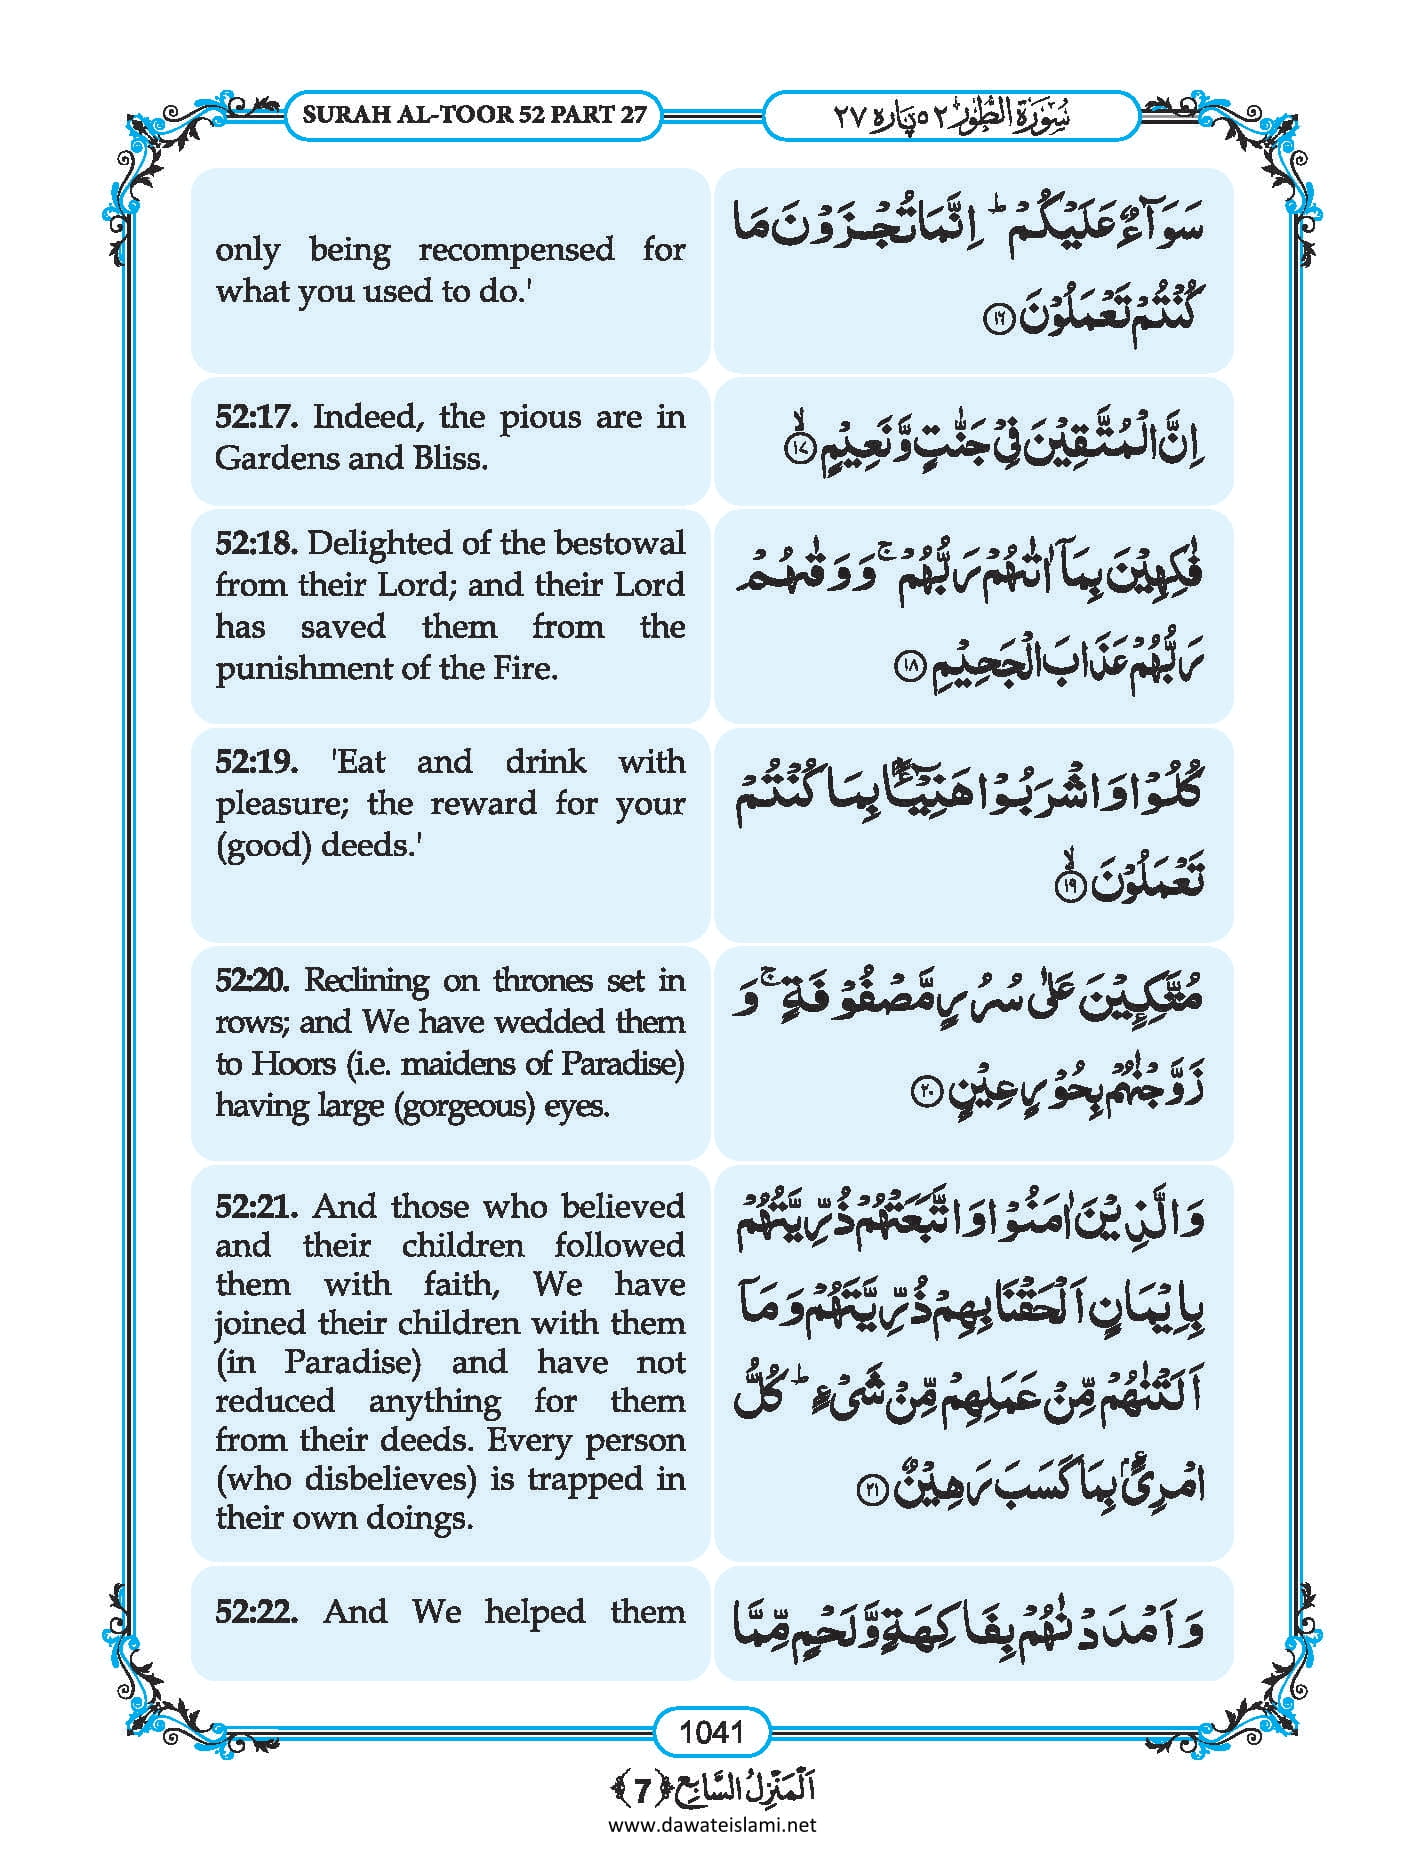 SURAH AL-TOOR 52 PART 27
سُوْرَۃُ الطُّوْر ٥٢ پارہ ٢٧
only being recompensed for
what you used to do.'
سَوَآءٌ عَلَیْكُمْ ؕ اِنَّمَا تُجْزَوْنَ مَا
كُنْتُمْ تَعْمَلُوْنَ ﴿۱۶﴾
52:17. Indeed, the pious are in
Gardens and Bliss.
اِنَّ الْمُتَّقِیْنَ فِیْ جَنّٰتٍ وَّ نَعِیْمٍ ﴿ۙ۱۷﴾
52:18. Delighted of the bestowal
from their Lord; and their Lord
has saved them from the
punishment of the Fire.
فٰكِهِیْنَ بِمَاۤ اٰتٰىهُمْ رَبُّهُمْ ۚ وَ وَقٰىهُمْ
رَبُّهُمْ عَذَابَ الْجَحِیْمِ ﴿۱۸﴾
52:19. 'Eat and drink with
pleasure; the reward for your
(good) deeds.'
كُلُوْا وَ اشْرَبُوْا هَنِیْٓـًٔۢا بِمَا كُنْتُمْ
تَعْمَلُوْنَ ﴿ۙ۱۹﴾
52:20. Reclining on thrones set in
rows; and We have wedded them
to Hoors (i.e. maidens of Paradise)
having large (gorgeous) eyes.
مُتَّكِـِٕیْنَ عَلٰی سُرُرٍ مَّصْفُوْفَةٍ ۚ وَ
زَوَّجْنٰهُمْ بِحُوْرٍ عِیْنٍ ﴿۲۰﴾
52:21. And those who believed
and their children followed
them with faith, We have
joined their children with them
(in Paradise) and have not
reduced anything for them
from their deeds. Every person
(who disbelieves) is trapped in
their own doings.
وَ الَّذِیْنَ اٰمَنُوْا وَ اتَّبَعَتْهُمْ ذُرِّیَّتُهُمْ
بِاِیْمَانٍ اَلْحَقْنَا بِهِمْ ذُرِّیَّتَهُمْ وَ مَاۤ
اَلَتْنٰهُمْ مِّنْ عَمَلِهِمْ مِّنْ شَیْءٍ ؕ كُلُّ
امْرِئٍۭ بِمَا كَسَبَ رَهِیْنٌ ﴿۲۱﴾
52:22. And We helped them
وَ اَمْدَدْنٰهُمْ بِفَاكِهَةٍ وَّ لَحْمٍ مِّمَّا
1041
اَلْمَنْزِلُ السَّابِع ﴿7﴾
www.dawateislami.net